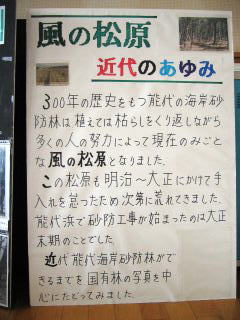 風の松原
近代のあゆみ
300年の歴史をもつ能代の海岸砂
防林は植えては枯らしをくり返しながら
多くの人の努力によって現在のみごと
な風の松原となりました。
この松原も明治〜大正にかけて手
入れを怠ったため次第に荒れてきました。
能代浜で砂防工事が始まったのは大正
末期のことでした。
近代能代海岸砂防林がで
きるまでを国有林の写真を中
心にたどってみました。